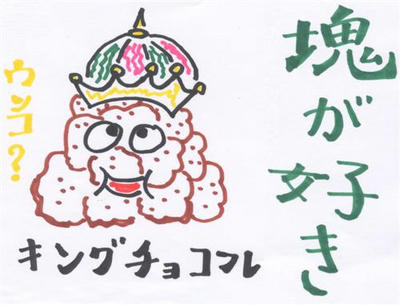 塊が好き
ウンコ？
キングチョコフレ